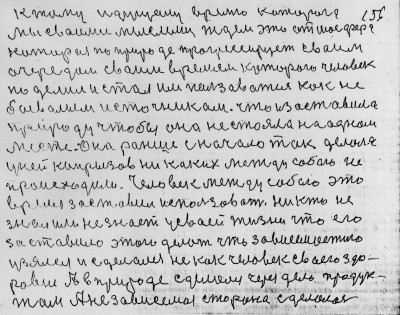 к тому идущему время которого 156
мы своими мыслями ждем это атмосфера
которая по природе прогрессирует своим
очередом своим временем которого человек
поделил и стал им ползоватся как не
бывалым источникам. что и заставила
природу чтобы она нестояла на одном
месте. Она раньше сначало так делола
у ней капризов никаких между собою не
происходили. Человек между собою это
время заставил использоват. никто не
знал или незнает у своей жизни что его
заставило этого делат что зависимостию
узялся и сделался не как человек своего здо-
равия А в природе сделоли через дело продук-
там А независемая сторона сделолос